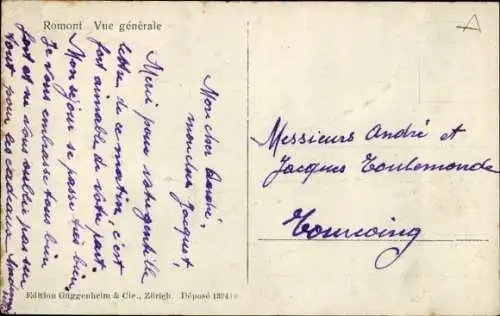 Romont Vue générale
Mon cher André,
mon cher Jacquot,
Merci pour votre gentille
lettre de ce matin, c'est
fort aimable de votre part
Mon séjour se passe très bien,
Je vous embrasse tous bien
fort et ne vous oublie pas sur
tout pour les cadeaux
Messieurs André et
Jacques Toulemonde
Tourcoing
Edition Guggenheim & Cie., Zürich. Déposé 13241